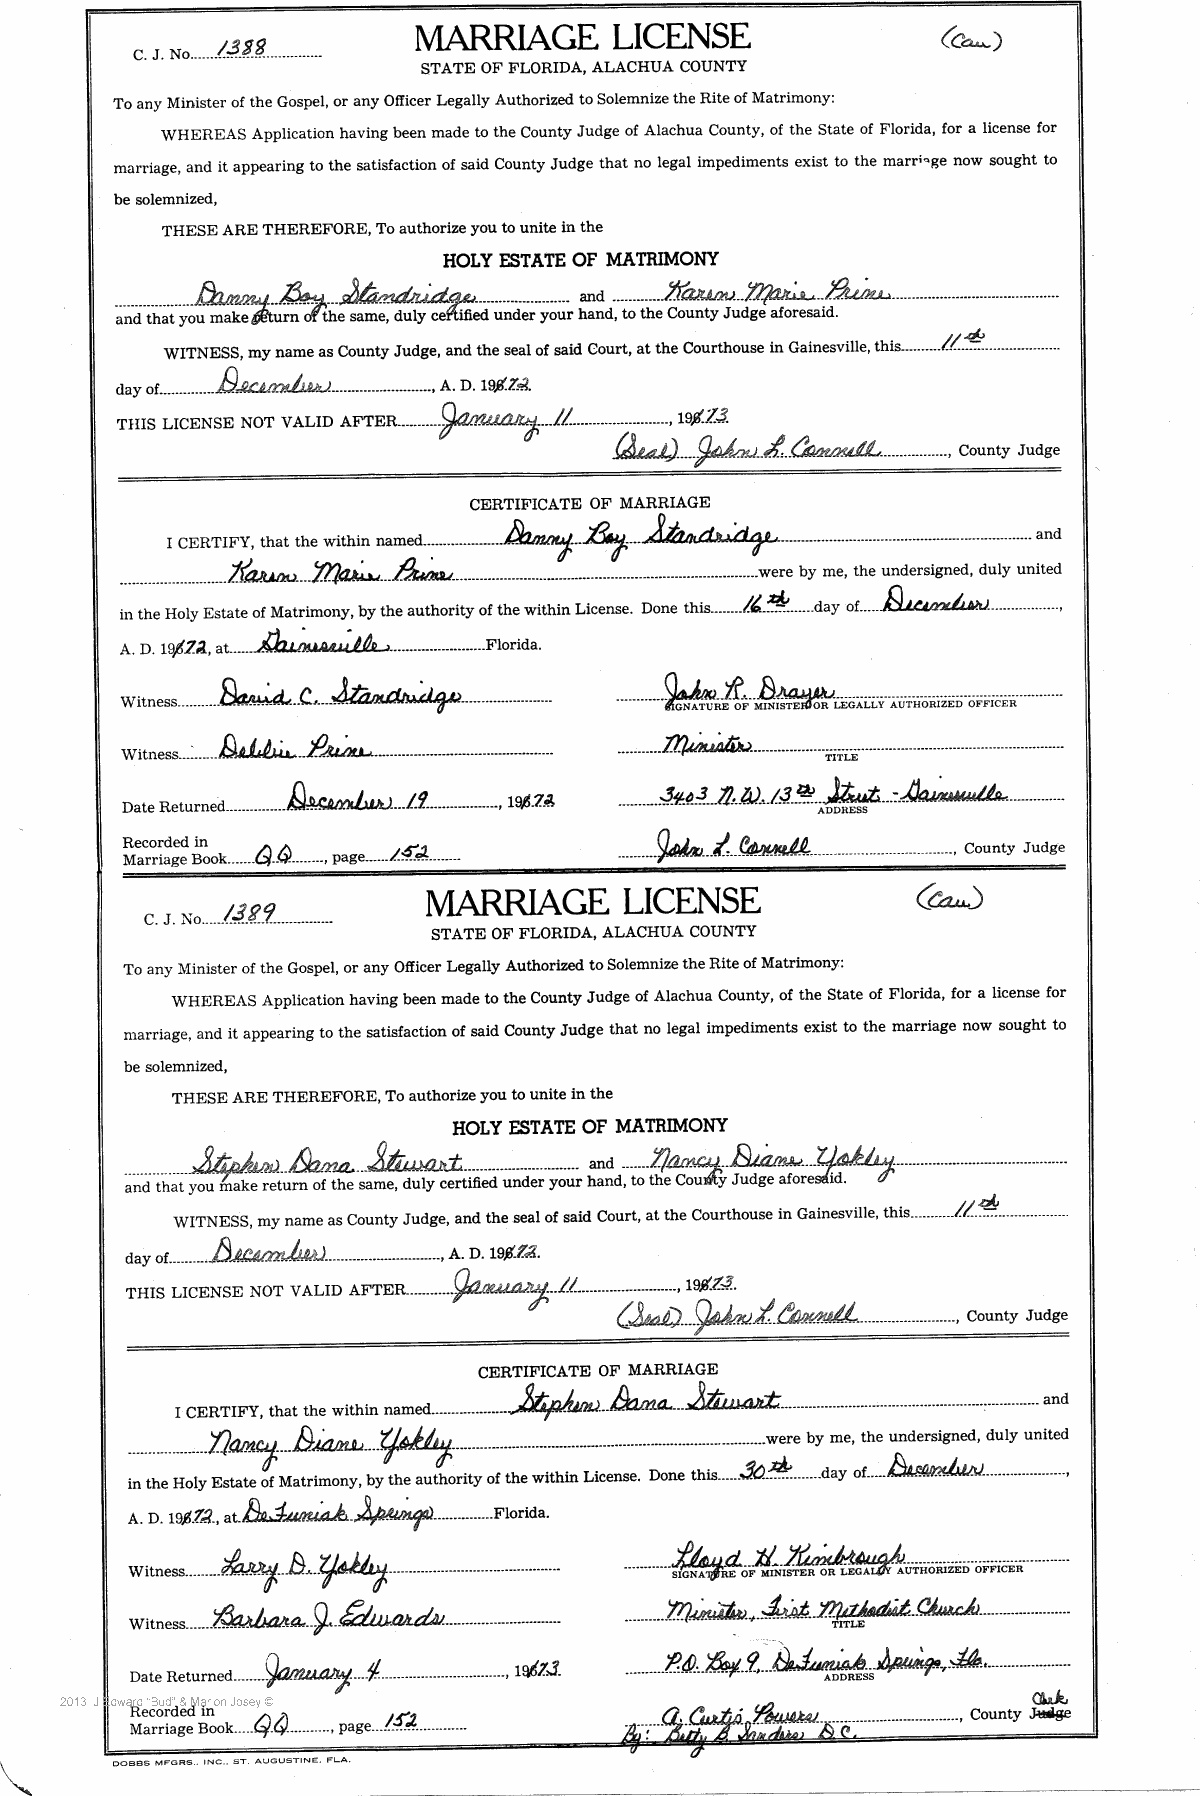 C. J. No. 1388
MARRIAGE LICENSE
(Cau)
STATE OF FLORIDA, ALACHUA COUNTY
To any Minister of the Gospel, or any Officer Legally Authorized to Solemnize the Rite of Matrimony:
WHEREAS Application having been made to the County Judge of Alachua County, of the State of Florida, for a license for
marriage, and it appearing to the satisfaction of said County Judge that no legal impediments exist to the marriage now sought to
be solemnized,
THESE ARE THEREFORE, To authorize you to unite in the
HOLY ESTATE OF MATRIMONY
Danny Boy Standridge and Karen Marie Prine
and that you make return of the same, duly certified under your hand, to the County Judge aforesaid.
WITNESS, my name as County Judge, and the seal of said Court, at the Courthouse in Gainesville, this 11th
day of December, A. D. 1972.
THIS LICENSE NOT VALID AFTER January 11, 1973
(Seal) John L. Connell, County Judge
CERTIFICATE OF MARRIAGE
I CERTIFY, that the within named Danny Boy Standridge and
Karen Marie Prine were by me, the undersigned, duly united
in the Holy Estate of Matrimony, by the authority of the within License. Done this 16th day of December,
A. D. 1972, at Gainesville Florida.
Witness David C. Standridge
John R. Drayer
SIGNATURE OF MINISTER OR LEGALLY AUTHORIZED OFFICER
Witness Debbie Prine
Minister
TITLE
Date Returned December 19, 1972
3403 N.W. 13th Street - Gainesville
ADDRESS
Recorded in
Marriage Book QQ, page 152
John L. Connell, County Judge
C. J. No. 1389
MARRIAGE LICENSE
(Cau)
STATE OF FLORIDA, ALACHUA COUNTY
To any Minister of the Gospel, or any Officer Legally Authorized to Solemnize the Rite of Matrimony:
WHEREAS Application having been made to the County Judge of Alachua County, of the State of Florida, for a license for
marriage, and it appearing to the satisfaction of said County Judge that no legal impediments exist to the marriage now sought to
be solemnized,
THESE ARE THEREFORE, To authorize you to unite in the
HOLY ESTATE OF MATRIMONY
Stephen Dana Stewart and Nancy Diane Yokley
and that you make return of the same, duly certified under your hand, to the County Judge aforesaid.
WITNESS, my name as County Judge, and the seal of said Court, at the Courthouse in Gainesville, this 11th
day of December, A. D. 1972.
THIS LICENSE NOT VALID AFTER January 11, 1973.
(Seal) John L. Connell, County Judge
CERTIFICATE OF MARRIAGE
I CERTIFY, that the within named Stephen Dana Stewart and
Nancy Diane Yokley were by me, the undersigned, duly united
in the Holy Estate of Matrimony, by the authority of the within License. Done this 30th day of December,
A. D. 1972, at DeFuniak Springs Florida.
Witness Larry D. Yokley
Lloyd H. Kimbrough
SIGNATURE OF MINISTER OR LEGALLY AUTHORIZED OFFICER
Witness Barbara J. Edwards
Minister, First Methodist Church
TITLE
Date Returned January 4, 1973
P.O. Box 9, DeFuniak Springs, Fla.
ADDRESS
2013 J Edward "Bud" & Marion Josey ©
Recorded in
Marriage Book QQ, page 152
A. Curtis Powers, County Judge Clerk
By: Betty B. Sanders D.C.
DOBBS MFGRS., INC., ST. AUGUSTINE, FLA.